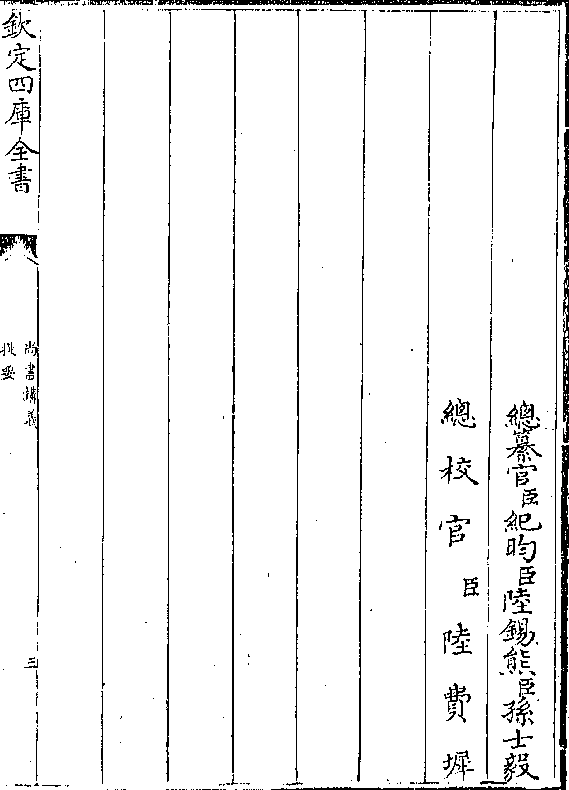 總纂官臣紀昀臣陸錫熊臣孫士毅
總校官臣陸費墀
欽定四庫全書
尚書講義
提要
三